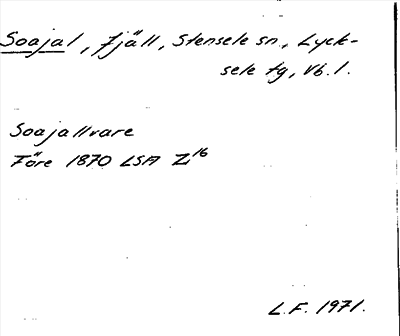 Soajal, fjäll, Stensele sn., Lyck-
sele tg, Vb. l.
Soajallvare
Före 1870 LSA Z16
L.F. 1971.